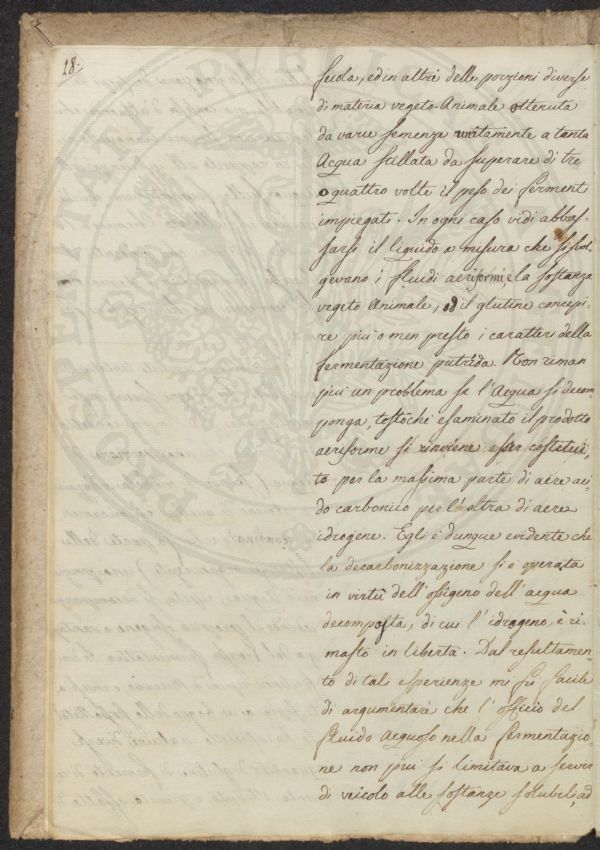 18.
fecola, ed in altri delle porzioni diverse
di materia vegeto-Animale ottenuta
da varie semenze unitamente a tanta
Acqua stillata da superare di tre
o quattro volte il peso dei fermenti
impiegati. In ogni caso vidi abbas-
sarsi il liquido a misura che si svol-
gevano i fluidi aeriformi, e la sostanza
vegeto Animale, ed il glutine concepi-
re più o men presto i caratteri della
fermentazione putrida. Non riman
più un problema se l'Acqua si decom
ponga, tostochè esaminato il prodotto
aeriforme si rinviene esser costitui-
to per la massima parte di aere aci-
do carbonico per l'altra di aere
idrogene. Egli è dunque evidente che
la decarbonizzazione si è operata
in virtù dell'ossigeno dell'acqua
decomposta, di cui l'idrogeno, è ri-
masto in libertà. Dal resultamen-
to di tali esperienze mi fù facile
di argumentare che l'officio del
fluido Acquoso nella fermentazio-
ne non più si limitava a servir
di veicolo alle sostanze solubili, ad